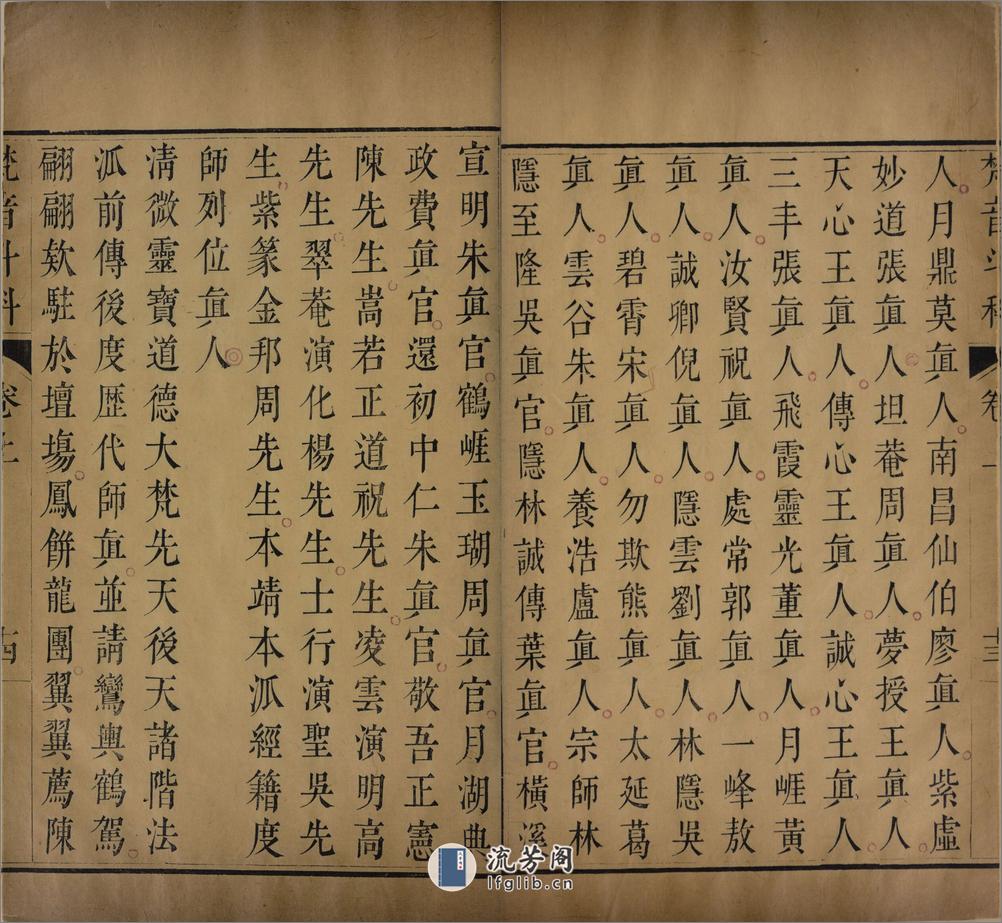 梵音斗科 卷上 十三
人月鼎莫眞人南昌仙伯廖眞人紫虛
妙道張眞人坦菴周眞人夢授王眞人
天心王眞人傳心王眞人誠心王眞人
三丰張眞人飛霞靈光董眞人月崕黃
眞人汝賢祝眞人處常郭眞人一峰敖
眞人誠卿倪眞人隱雲劉眞人林隱吳
眞人碧霄宋眞人勿欺熊眞人太延葛
眞人雲谷朱眞人養浩盧眞人宗師林
隱至隆吳眞官隱林誠傳葉眞官橫溪
宣明朱眞官鶴崕玉瑚周眞官月湖典
政費眞官還初中仁朱眞官敬吾正憲
陳先生嵩若正道祝先生凌雲演明高
先生翠菴演化楊先生士行演聖吳先
生紫篆金邦周先生本靖本派經籍度
師列位眞人
淸微靈寶道德大梵先天後天諸階法
派前傳後度歷代師眞並請鸞輿鶴駕
翩翩欵駐於壇場鳳餠龍團翼翼薦陳
梵音斗科 卷上 十四
流芳阁
lfglib.cn